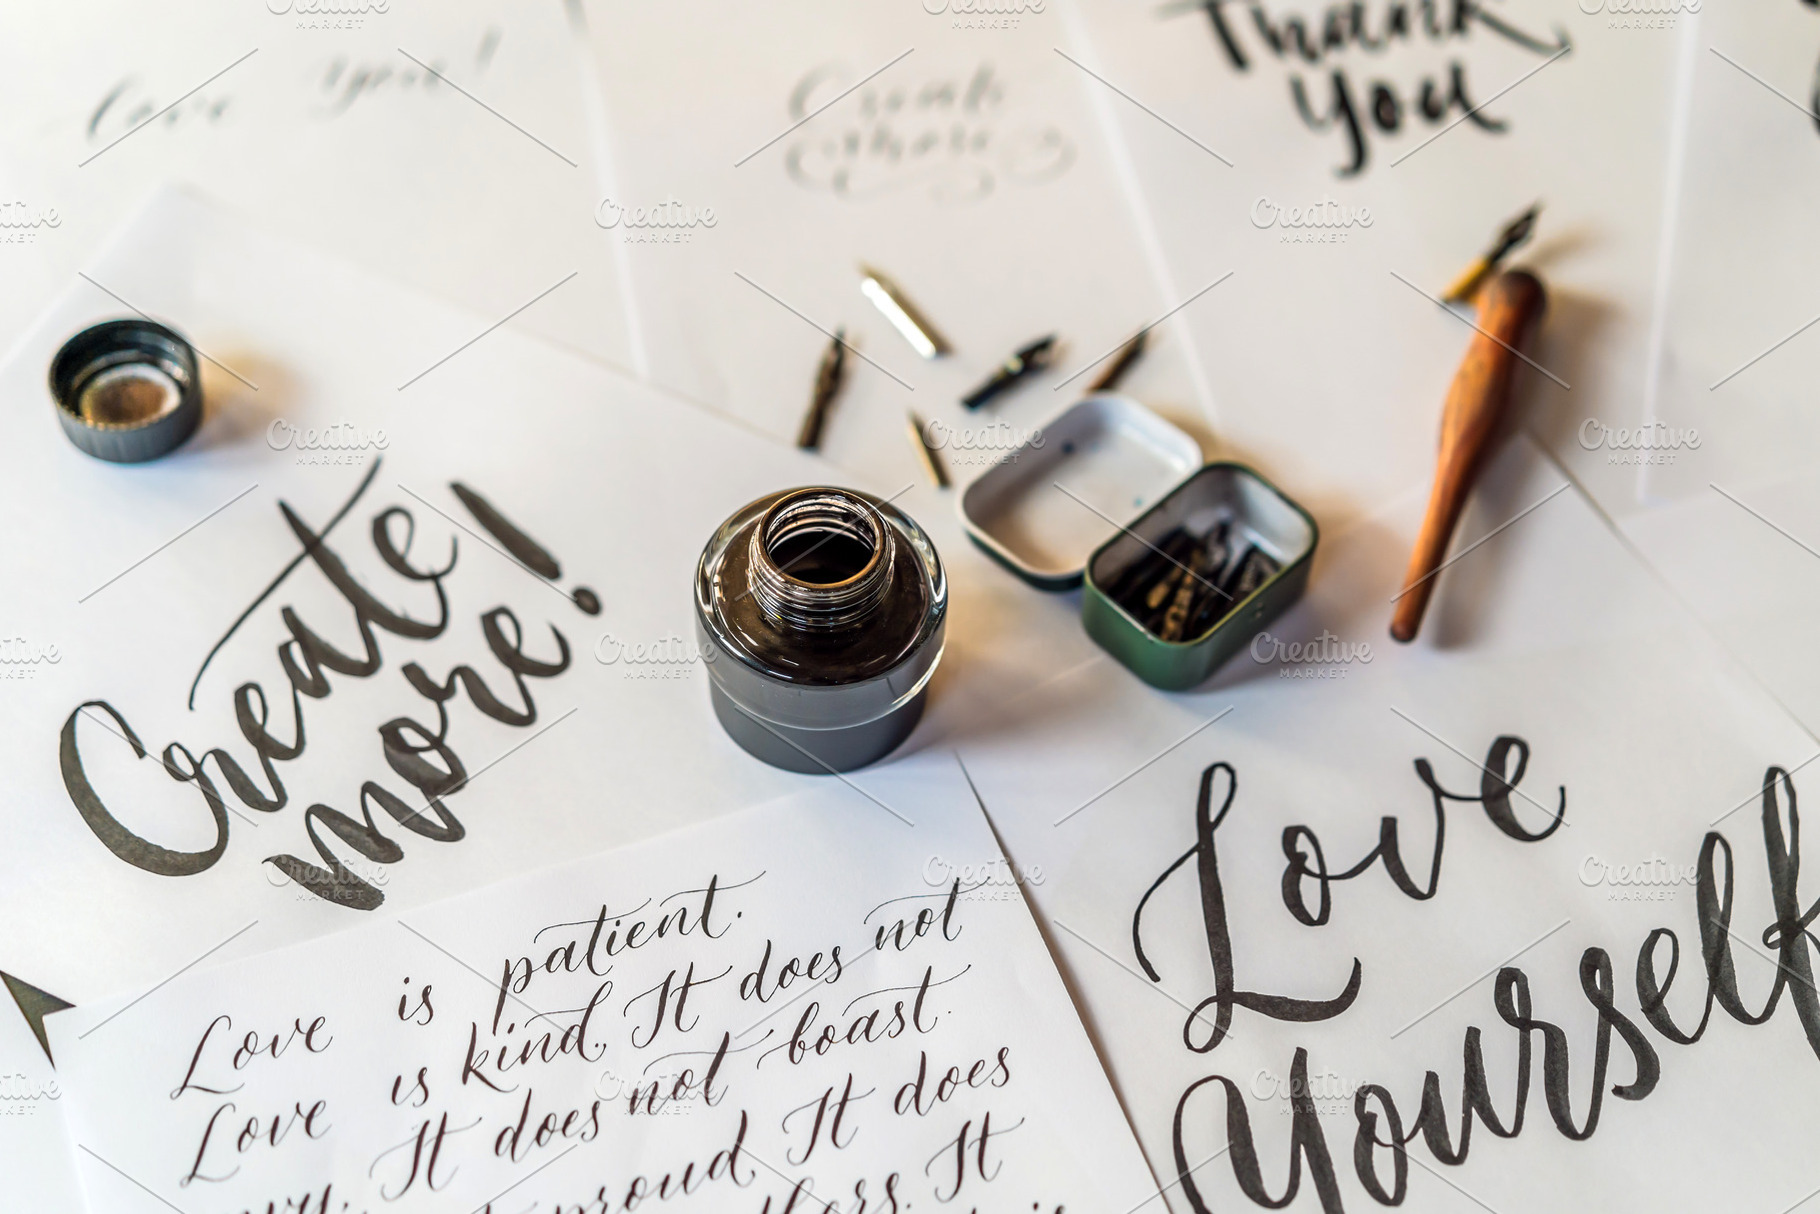 Love you!
Create
more
Thank
you
Create
more!
Love is patient.
Love is kind. It does not
envy. It does not boast.
proud. It does
others. It
is
Love
Yourself
Creative
MARKET